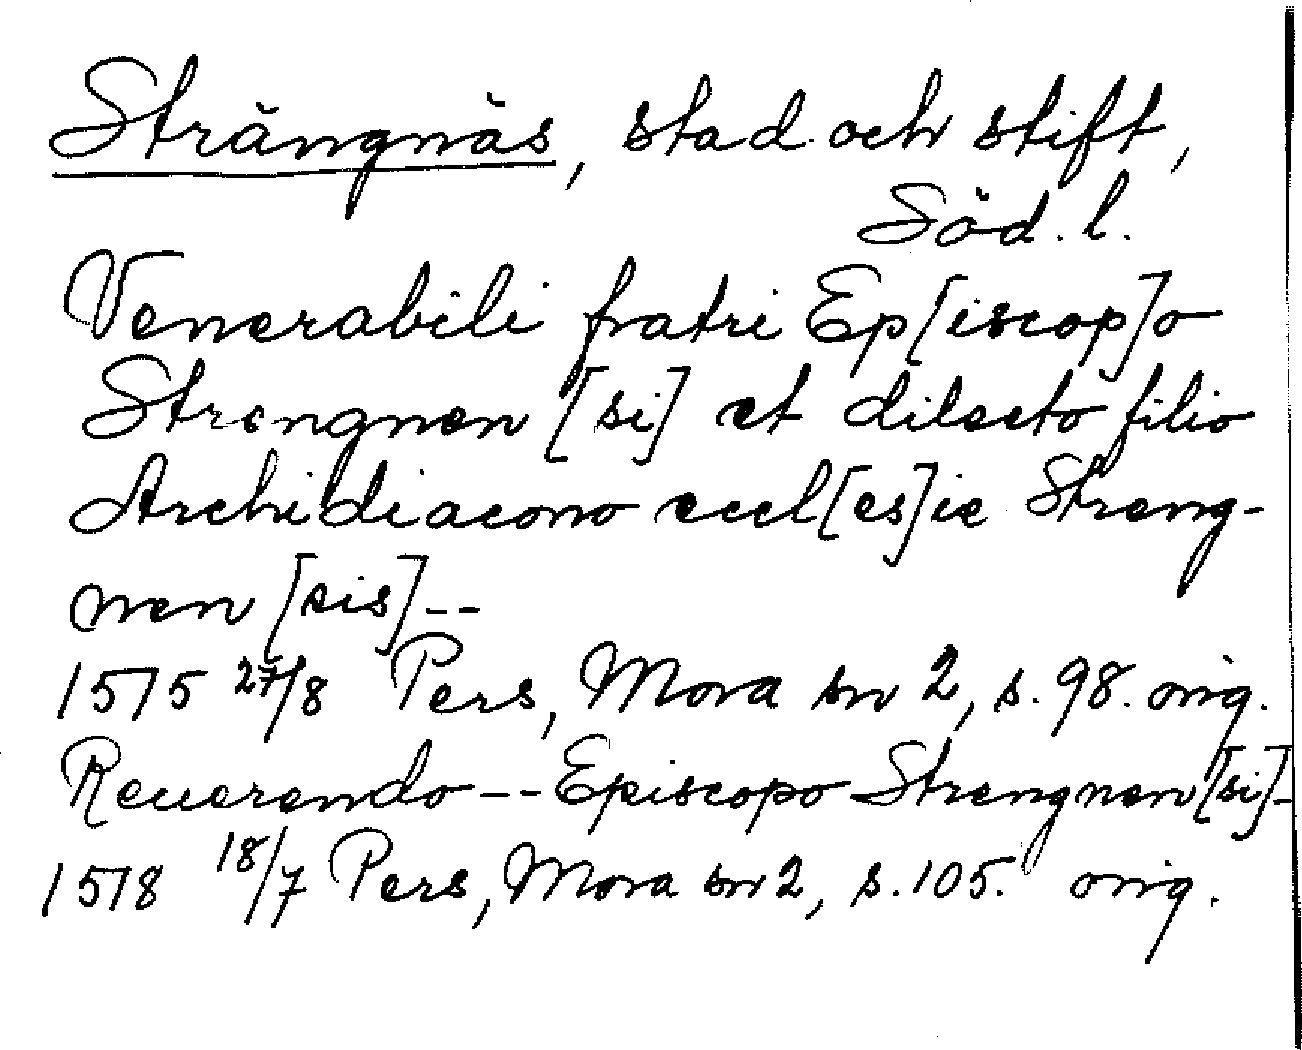 Strängnäs, stad och stift,
Söd. l.
Venerabili fratri Ep[iscop]o
Strengnen [si] et dilecto filio
Archidiacono eccl[es]ie Streng-
nen [sis]--
1515 27/8 Pers, Mora sn 2, s. 98. orig.
Reuerendo -- Episcopo Strengnen[si]-
1518 18/7 Pers, Mora sn 2, s. 105. orig.